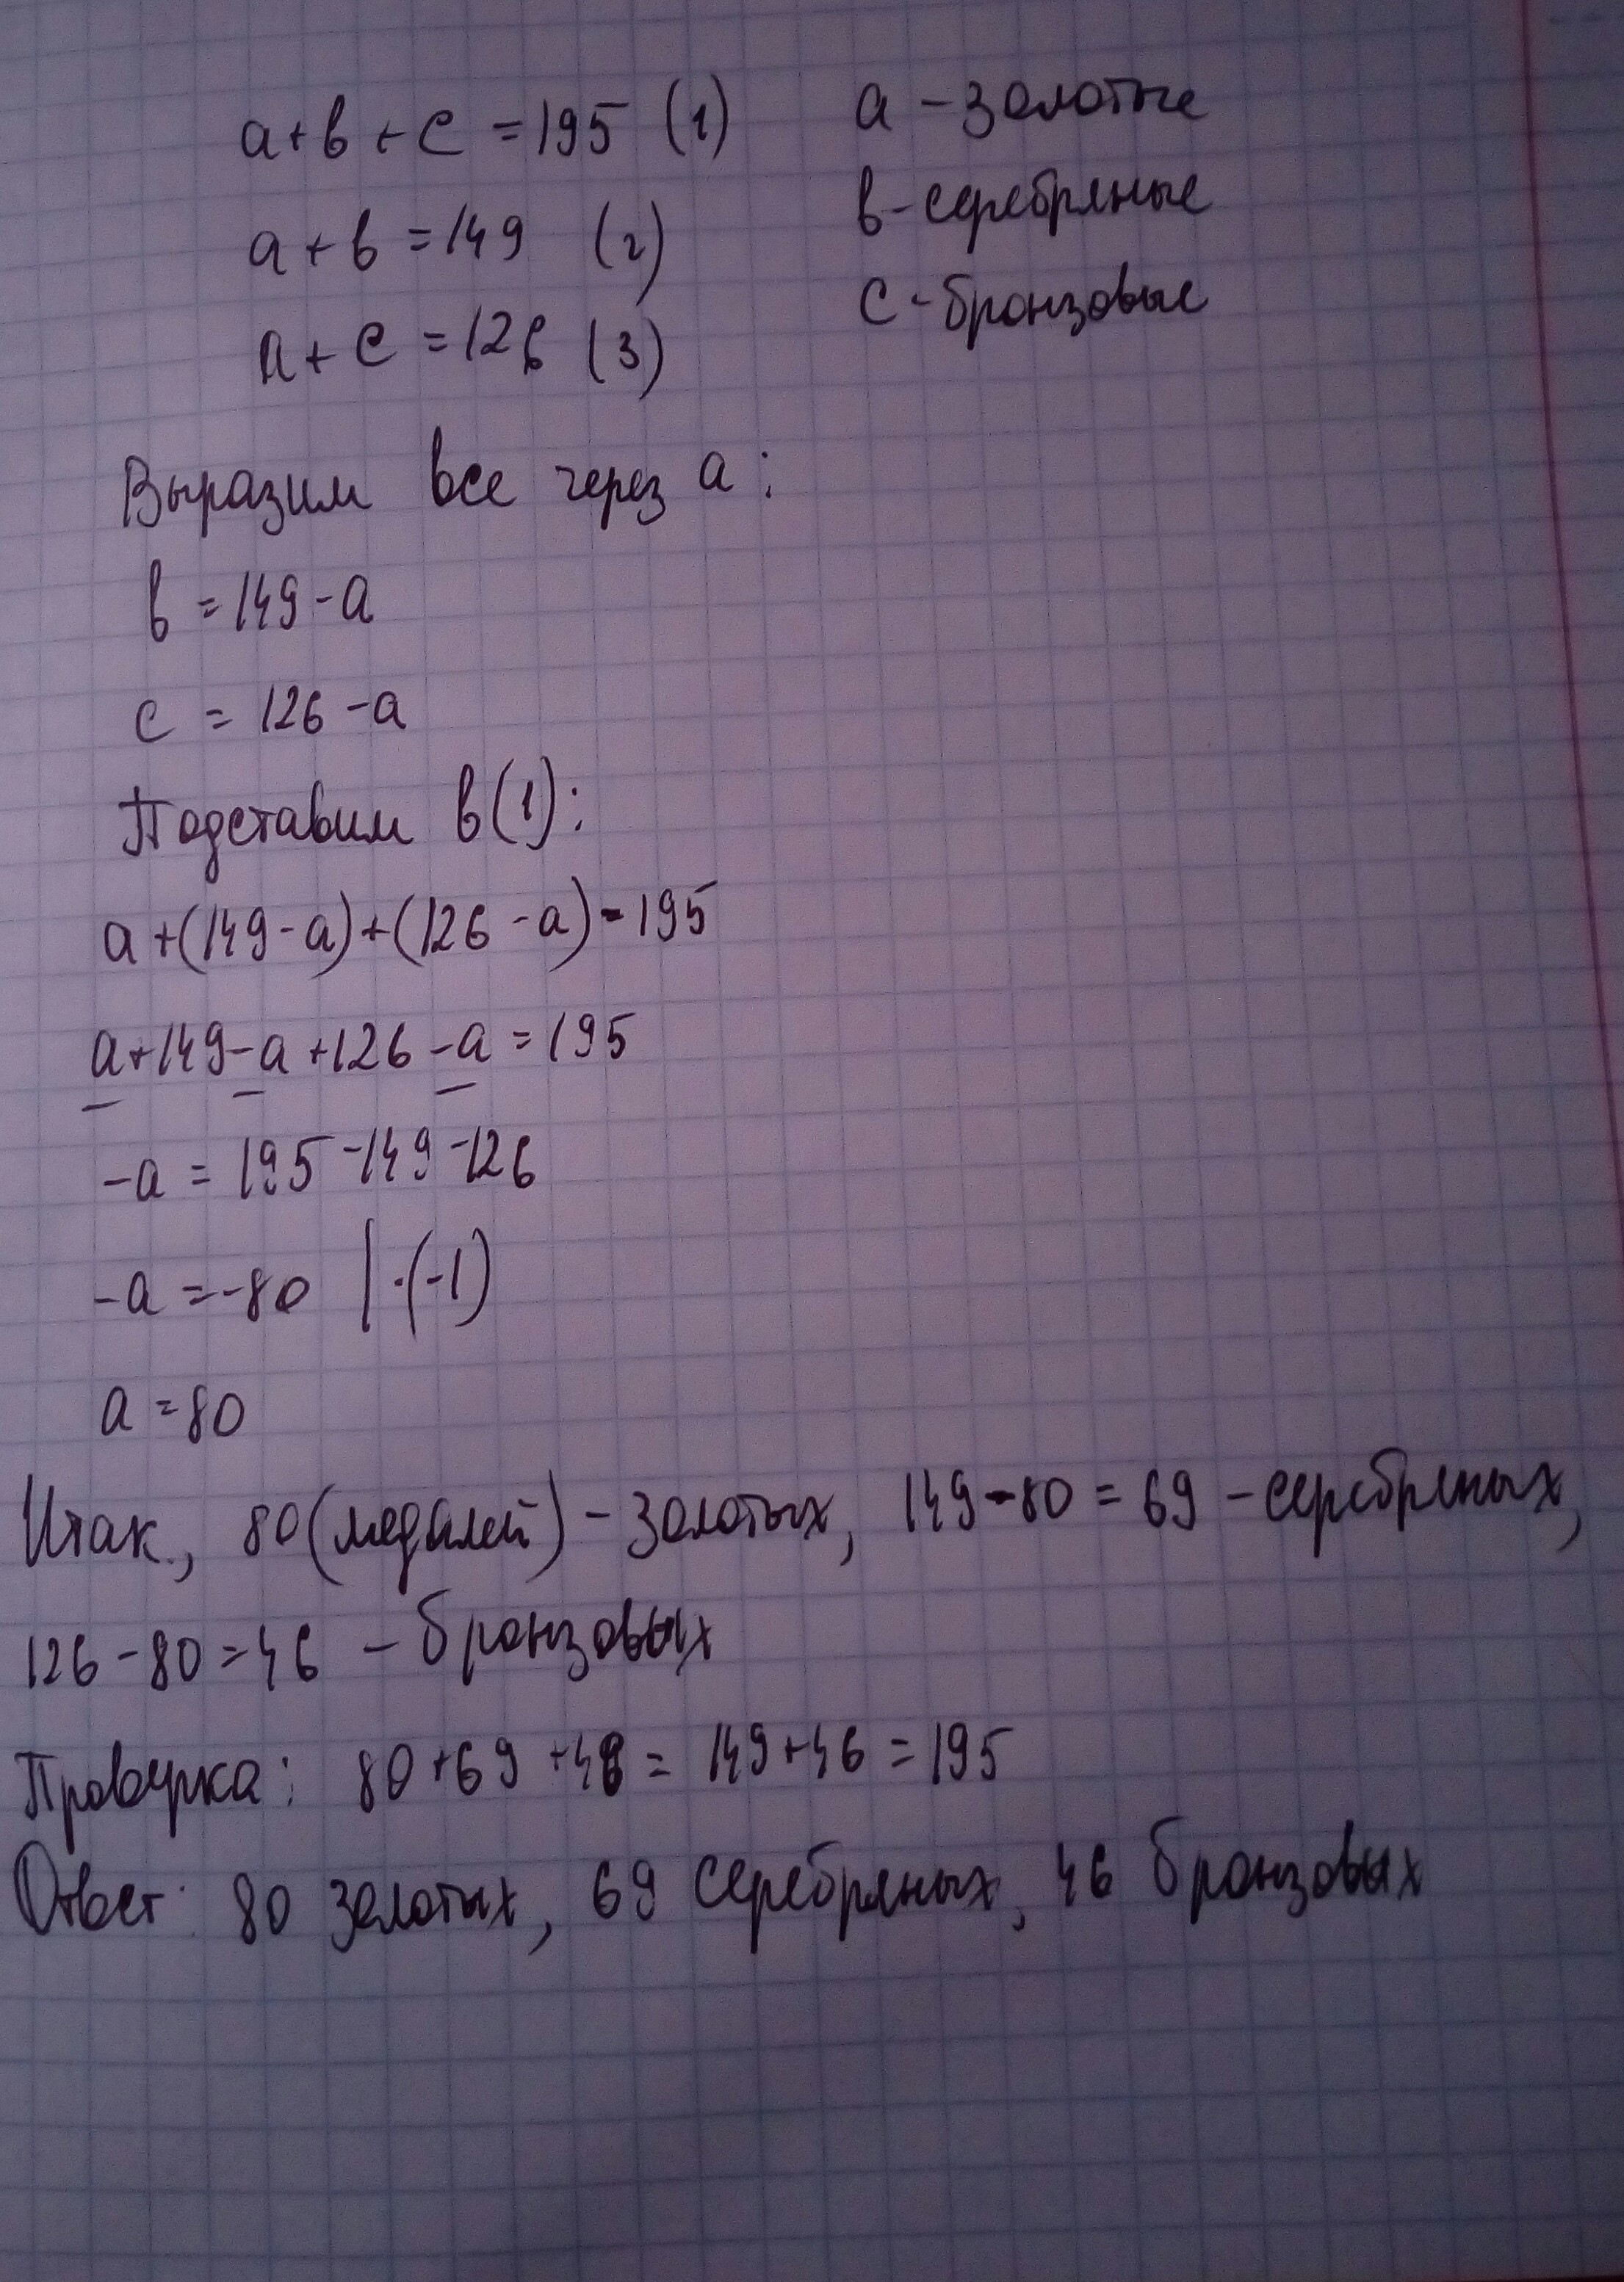 a + в + с = 195 (1)
a - золотые
a + в = 149 (2)
в - серебряные
a + с = 126 (3)
с - бронзовые
Выразим все через a:
в = 149 - a
с = 126 - a
Подставим в (1):
a + (149 - a) + (126 - a) = 195
a + 149 - a + 126 - a = 195
-a = 195 - 149 - 126
-a = -80 | ·(-1)
a = 80
Итак, 80 (медалей) - золотых, 149 - 80 = 69 - серебряных,
126 - 80 = 46 - бронзовых
Проверка: 80 + 69 + 46 = 149 + 46 = 195
Ответ: 80 золотых, 69 серебряных, 46 бронзовых